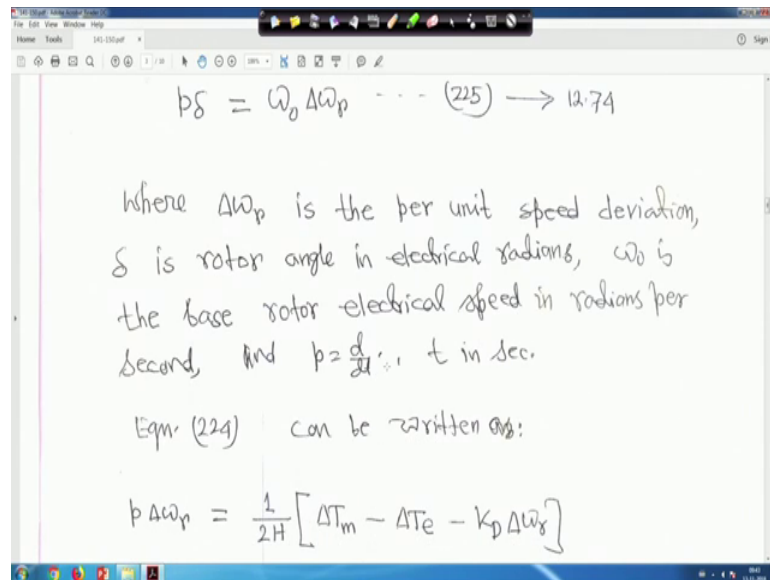 141-150.pdf - Adobe Acrobat Reader DC
File Edit View Window Help
Home Tools 141-150.pdf × Sign
pδ = ω₀ Δωᵣ - - - (225) → 12.74
Where Δωᵣ is the per unit speed deviation,
δ is rotor angle in electrical radians, ω₀ is
the base rotor electrical speed in radians per
second, And p = d/dt , t in sec.
Eqn. (224) can be written as:
p Δωᵣ = 1/2H [ΔTm − ΔTe − K_D Δωᵣ]